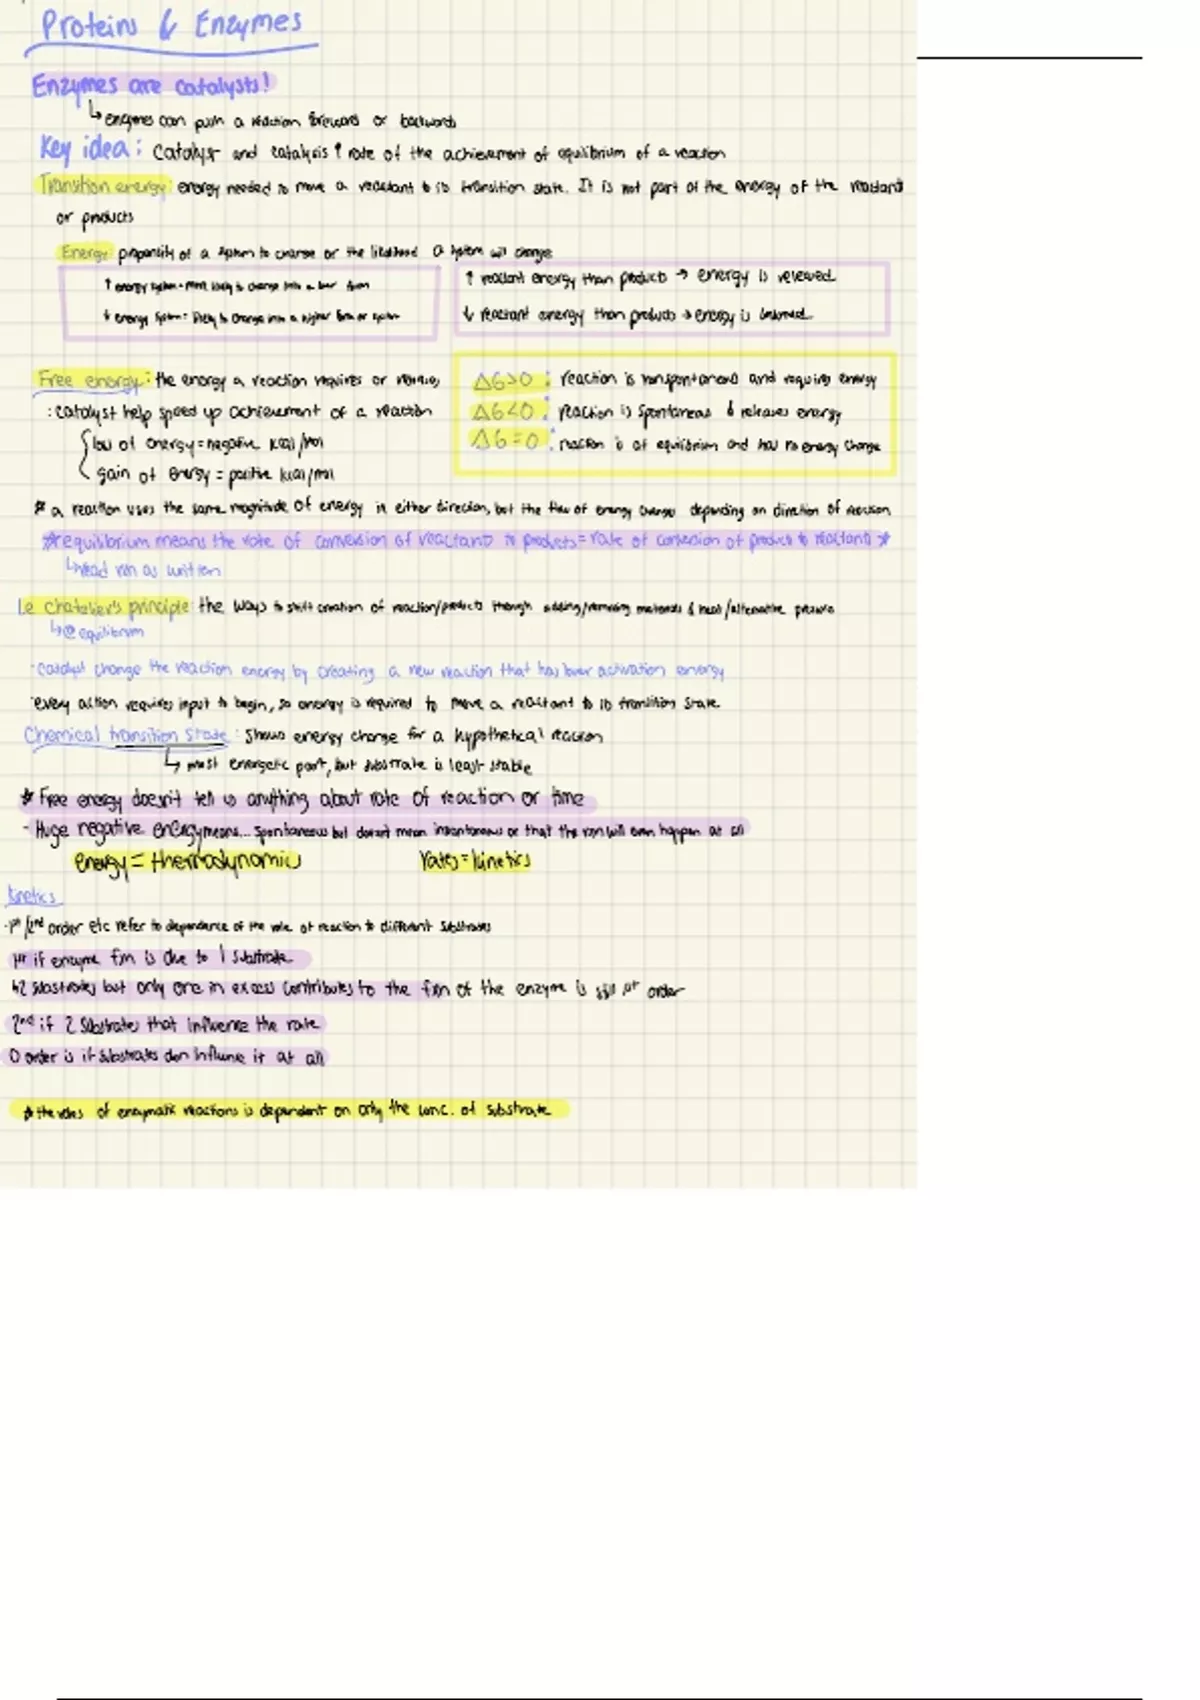 Proteins & Enzymes
Enzymes are catalysts!
↳ enzymes can push a reaction forward or backwards
Key idea: Catalyst and catalysis ↑ rate of the achievement of equilibrium of a reaction
Transition energy: energy needed to move a reactant to its transition state. It is not part of the energy of the reactants
or products
Energy propensity of a system to change or the likelihood a system will change
↑ energy system = more likely to change into a lower form
↓ energy system = likely to change into a higher form or system
↑ reactant energy than products → energy is released
↓ reactant energy than products → energy is
Free energy: the energy a reaction requires or releases
: catalyst help speed up achievement of a reaction
loss of energy = negative kcal/mol
gain of energy = positive kcal/mol
ΔG>0 : reaction is nonspontaneous and requires energy
ΔG<0 : reaction is spontaneous & releases energy
ΔG=0 : reaction is at equilibrium and has no energy change
* a reaction uses the same magnitude of energy in either direction, but the flow of energy changes depending on direction of reaction
*equilibrium means the rate of conversion of reactants to products = rate of conversion of products to reactants *
↳ read rxn as written
Le Chatelier's principle: the ways to shift creation of reaction/products through adding/removing materials & heat/alternative pressure
↳ @ equilibrium
·catalyst change the reaction energy by creating a new reaction that has lower activation energy
·every action requires input to begin, so energy is required to move a reactant to its transition state
Chemical transition state: shows energy change for a hypothetical reaction
↳ most energetic part, but substrate is least stable
* Free energy doesn't tell us anything about rate of reaction or time
- Huge negative energy means... spontaneous but doesn't mean instantaneous or that the rxn will even happen at all
energy = thermodynamics
rates = kinetics
Kinetics
·1st/2nd order etc refer to dependence of the rate of reaction to different substrates
1st if enzyme fxn is due to 1 substrate
↳2 substrates but only one in excess contributes to the fxn of the enzyme is still 1st order
2nd if 2 substrates that influence the rate
0 order is if substrates don influence it at all
* the rates of enzymatic reactions is dependent on only the conc. of substrate